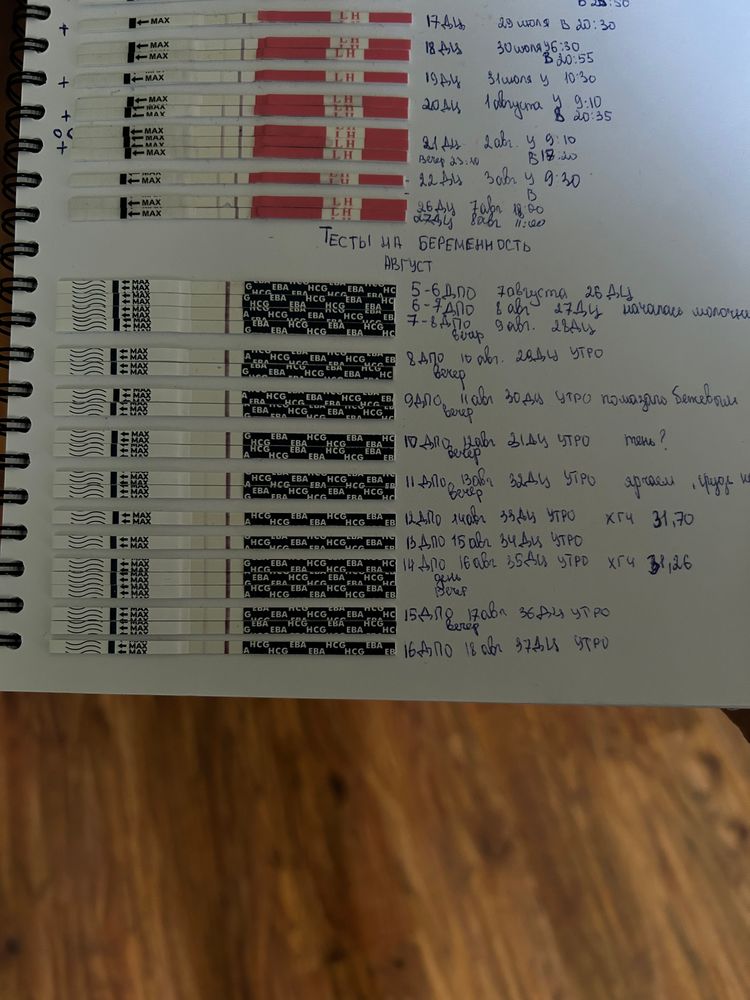 В 20:50
+ ← MAX LH 17ДЦ 29 июля В 20:30
← MAX LH 18ДЦ 30 июля У 6:30
← MAX В 20:55
+ ← MAX LH 19ДЦ 31 июля У 10:30
← MAX LH 20ДЦ 1 августа У 9:10
+ ← MAX В 20:35
← MAX LH 21ДЦ 2 авг. У 9:10
+ ← MAX LH Вечер 23:10 В 17:20
← MAX LH 22ДЦ 3 авг У 9:30
В
← MAX LH 26ДЦ 7 авг
← MAX LH 27ДЦ 8 авг 11:00
ТЕСТЫ НА БЕРЕМЕННОСТЬ
АВГУСТ
MAX HCG EBA 5-6ДПО 7 августа 26ДЦ
MAX HCG EBA 6-7ДПО 8 авг 27ДЦ началась
MAX HCG EBA 7-8ДПО 9 авг. 28ДЦ
вечер
MAX HCG EBA 8ДПО 10 авг. 29ДЦ УТРО
MAX HCG EBA вечер
MAX HCG EBA 9ДПО 11 авг 30ДЦ УТРО помазало бежевым
MAX HCG EBA вечер
MAX HCG EBA 10ДПО 12 авг 31ДЦ УТРО тень?
MAX HCG EBA вечер
MAX HCG EBA 11ДПО 13 авг 32ДЦ УТРО
MAX HCG EBA вечер
MAX HCG EBA 12ДПО 14 авг 33ДЦ УТРО ХГЧ 31,70
MAX HCG EBA 13ДПО 15 авг 34ДЦ УТРО
MAX HCG EBA 14ДПО 16 авг 35ДЦ УТРО ХГЧ 38,26
MAX HCG EBA день
MAX HCG EBA вечер
MAX HCG EBA 15ДПО 17 авг 36ДЦ УТРО
MAX HCG EBA вечер
MAX HCG EBA 16ДПО 18 авг 37ДЦ УТРО